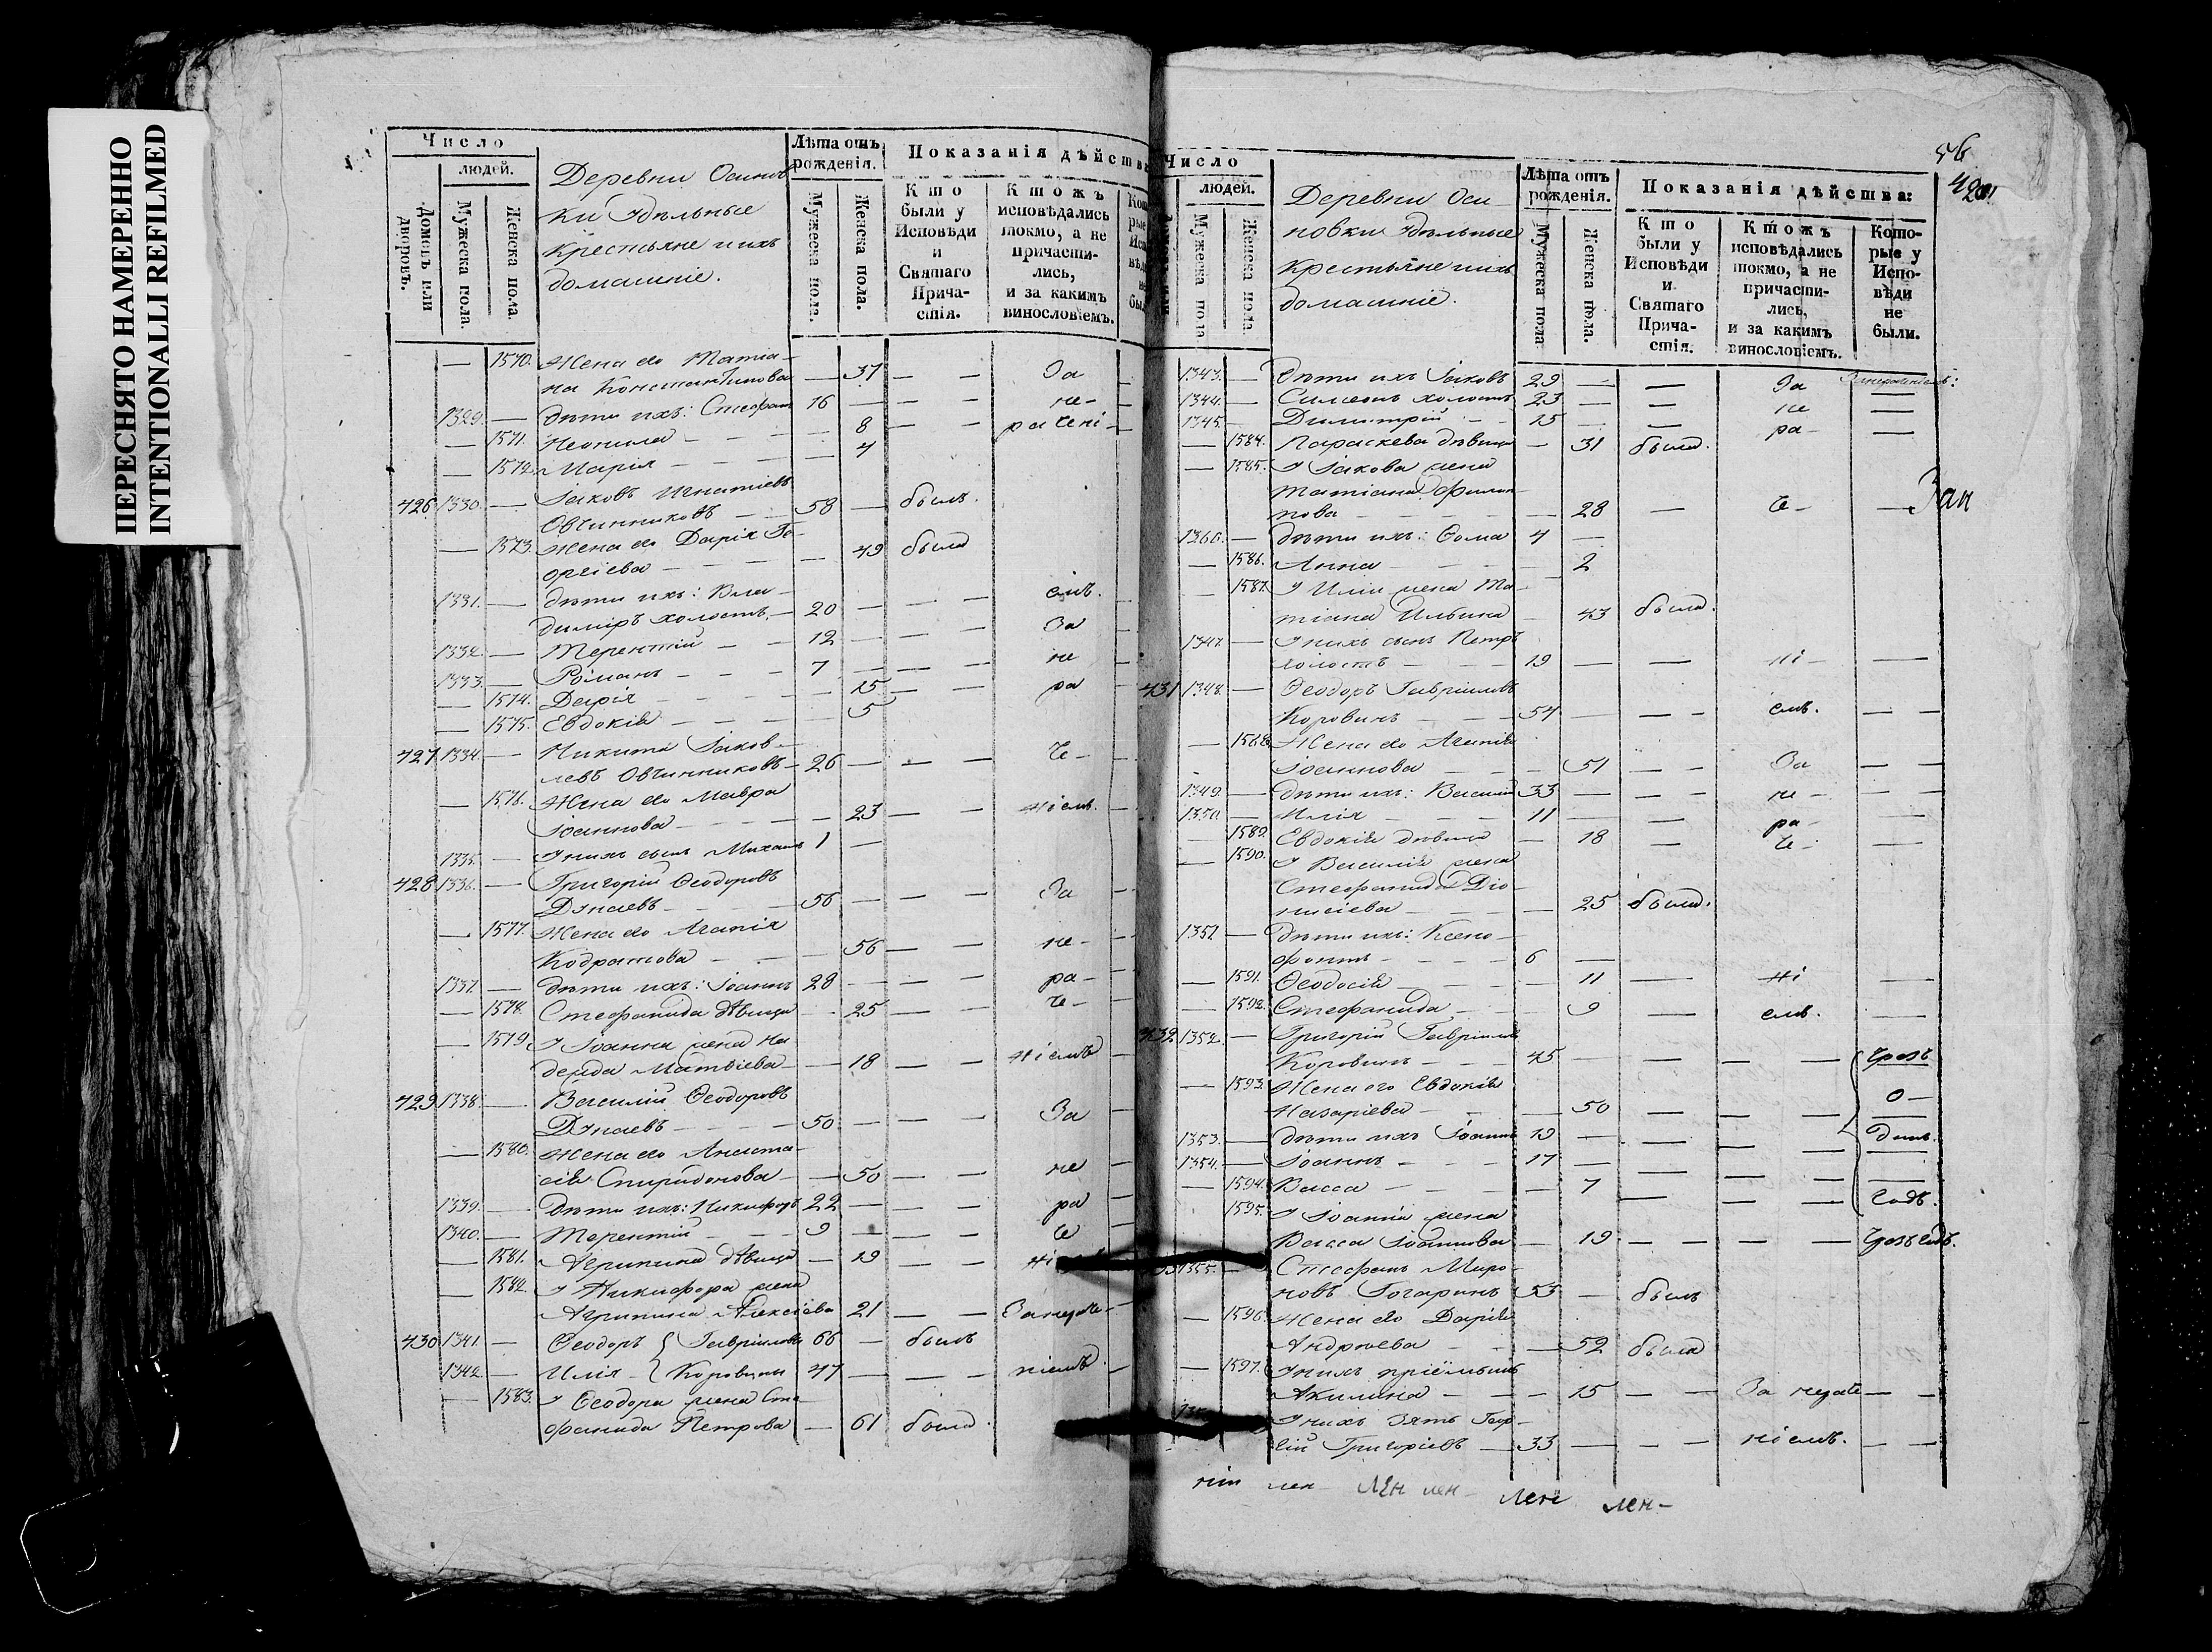 ПЕРЕСНЯТО НАМЕРЕННО
INTENTIONALLI REFILMED
Число
людей.
Домовъ или дворовъ.
Мужеска пола.
Женска пола.
Деревни Осинов
ки Удѣльные
Крестьяне и ихъ
домашніе.
Лѣта отъ рожденія.
Мужеска пола.
Женска пола.
Показанія дѣйств
Кто были у Исповѣди и Святаго Прича- стія.
Ктожъ исповѣдались токмо, а не причасти- лись, и за какимъ винословіемъ.
1570. Жена его Матіа-
на Константинова — 37 — — За
1329. — дѣти ихъ: Стефанъ 16 — — — не-
— 1571. Неонила — — — 8 — — раченi-
— 1572. Марія — — — 4
426 1330. — Іаковъ Игнатіевъ
Овчинниковъ — 58 — былъ.
— 1573. Жена его Дарія Ге-
оргіева — — — 49 была
1331. — дѣти ихъ: Вла-
димiръ холостъ. — 20 — — — емъ.
1332. — Терентій — — 12 — — — За
1333. — Романъ — — 7 — — — не
— 1574. Дарія — 15 — — ра
— 1575. Евдокія — — — 5
427 1334. — Никита Іаков-
левъ Овчинниковъ — 26 — — — че-
— 1576. Жена его Мавра
Іоаннова — — — 23 — — ніемъ.
1335. — У нихъ сынъ Михаилъ 1 —
428 1336. — Григорій Ѳеодоровъ
Дунаевъ — — — 56 — — — За
— 1577. Жена его Агапія
Кодратова — — — 56 — — не-
1337. — дѣти ихъ: Іоаннъ 28 — — — ра-
— 1578. Стефанида дѣвица — 25 — — че-
— 1579. У Іоанна жена На
дежда Матвіева — — 18 — — ніемъ
429 1338. — Василій Ѳеодоровъ
Дунаевъ — — — 50 — — — За
— 1580. Жена его Анаста-
сія Спиридонова — — 50 — — не
1339. — Дѣти ихъ: Никифоръ 22 — — — ра
1340. — Терентій — — — 9 — — — че
— 1581. Агрипина дѣвица — 19 — — ні
— 1582. У Никифора жена
Агрипина Алексіева 21 — — За нераче-
430 1341. — Ѳеодоръ { Гавріиловы 66 — былъ
1342. — Илія { Коровины 47 — — — ніемъ.
— 1583. У Ѳеодора жена Сте-
фанида Петрова — 61 была.
56
420
Число
людей.
Мужеска пола
Женска пола.
Деревни Оси-
новки Удѣльные
Крестьяне и ихъ
домашніе.
Лѣта отъ рожденія.
Мужеска пола
Женска пола.
Показанія дѣйства:
Кто были у Исповѣди и Святаго Прича- стія.
Ктожъ исповѣдались токмо, а не причасти- лись, и за какимъ винословіемъ.
Кото- рые у Испо- вѣди не были.
1343. — дѣти ихъ Іаковъ 29 — — За
1344. — Симеонъ холостъ 23 — — не —
1345. — Димитрій — — 15 — — ра- —
— 1584. Параскева дѣвица — 31 была.
— 1585. У Іакова жена
Татіана
нова — — — — 28 — че- — Зан
— дѣти ихъ: Ѳома 4 —
— 1586. Анна — — — 2
— 1587. У Иліи жена Та-
тіана Ильина — 43 была.
1347. — У нихъ сынъ Петръ
холостъ — — — 19 — — ні- —
431 1348. — Ѳеодоръ Гавріиловъ
Коровинъ — — — 54 — — — емъ. — —
— 1588 Жена его Агапія
Іоаннова — — — 51 — — За — —
1349. — Дѣти ихъ: Василій 33 — — — не — —
1350. — Илія — — — 11 — — ра- —
— 1589. Евдокія дѣвица — 18 — че- —
— 1590. У Василія жена
Стефанида Діо-
нисіева — — — 25 была.
1351 — дѣти ихъ: Ксено-
фонтъ — — — 6 —
— 1591. Ѳеодосія — — — 11 — ні —
— 1592. Стефанида — — 9 — емъ. —
432 1352. — Григорій Гавріиловъ
Коровинъ — — 45 — — — — чрезъ
— 1593. Жена его Евдокія
Назаріева — — — 50 — — — о-
1353. — дѣти ихъ Іоаннъ 19 — — — — динъ.
1354. — Іоаннъ — — 17 — — — —
— 1594. Васса — — — — 7 — — — годъ.
1595. У Іоанна жена
Васса Іоаннова — 19 — — — — чрезъ годъ.
1355. — Стефанъ Миро-
новъ Гогаринъ 53 — былъ
— 1596. Жена его Дарія
Андреева — — — 52 была
— 1597. У нихъ пріёмышъ
Акилина — — — 15 — — За нераче — —
У нихъ зять Геор-
гій Григоріевъ — 33 — — — ніемъ. — —
лен лен лен лен лен-